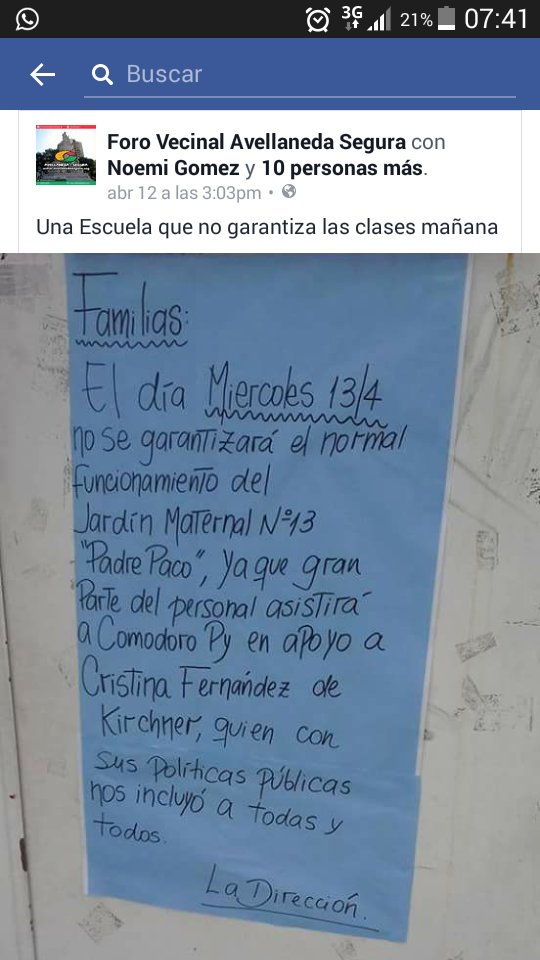 3G
21%
07:41
Buscar
Foro Vecinal Avellaneda Segura con
Noemi Gomez y 10 personas más.
abr 12 a las 3:03pm •
Una Escuela que no garantiza las clases mañana
Familias:
El día Miercoles 13/4
no se garantizará el normal
funcionamiento del
Jardín Maternal Nº13
"Padre Paco", ya que gran
Parte del personal asistirá
a Comodoro Py en apoyo a
Cristina Fernández de
Kirchner, quien con
sus Políticas Públicas
nos incluyó a todas y
todos.
La Dirección.